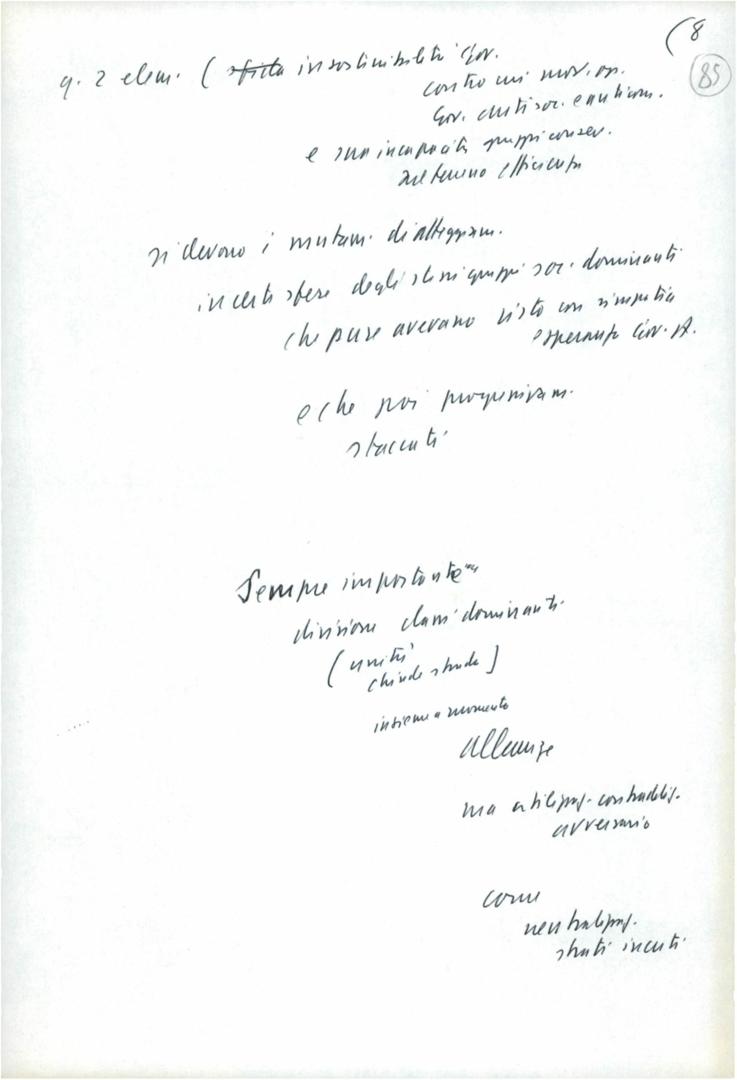 (8
85
q. 2 elem. ( sfida insostenibilità Gov.
contro un mov. op.
Gov. antisoc. e anticom.
e sua incapacità gruppi conser.
sul terreno efficienza
si devono i mutam. di atteggiam.
in certe sfere degli stessi gruppi soc. dominanti
che pure avevano visto con simpatia
esperienza Gov. A.
e che poi progressivam.
staccati
Sempre importante
divisione classi dominanti
( unità
chiude strada )
insieme a momento
alleanze
ma utilizzaz. contraddiz.
avversario
come
neutralizzaz.
strati incerti